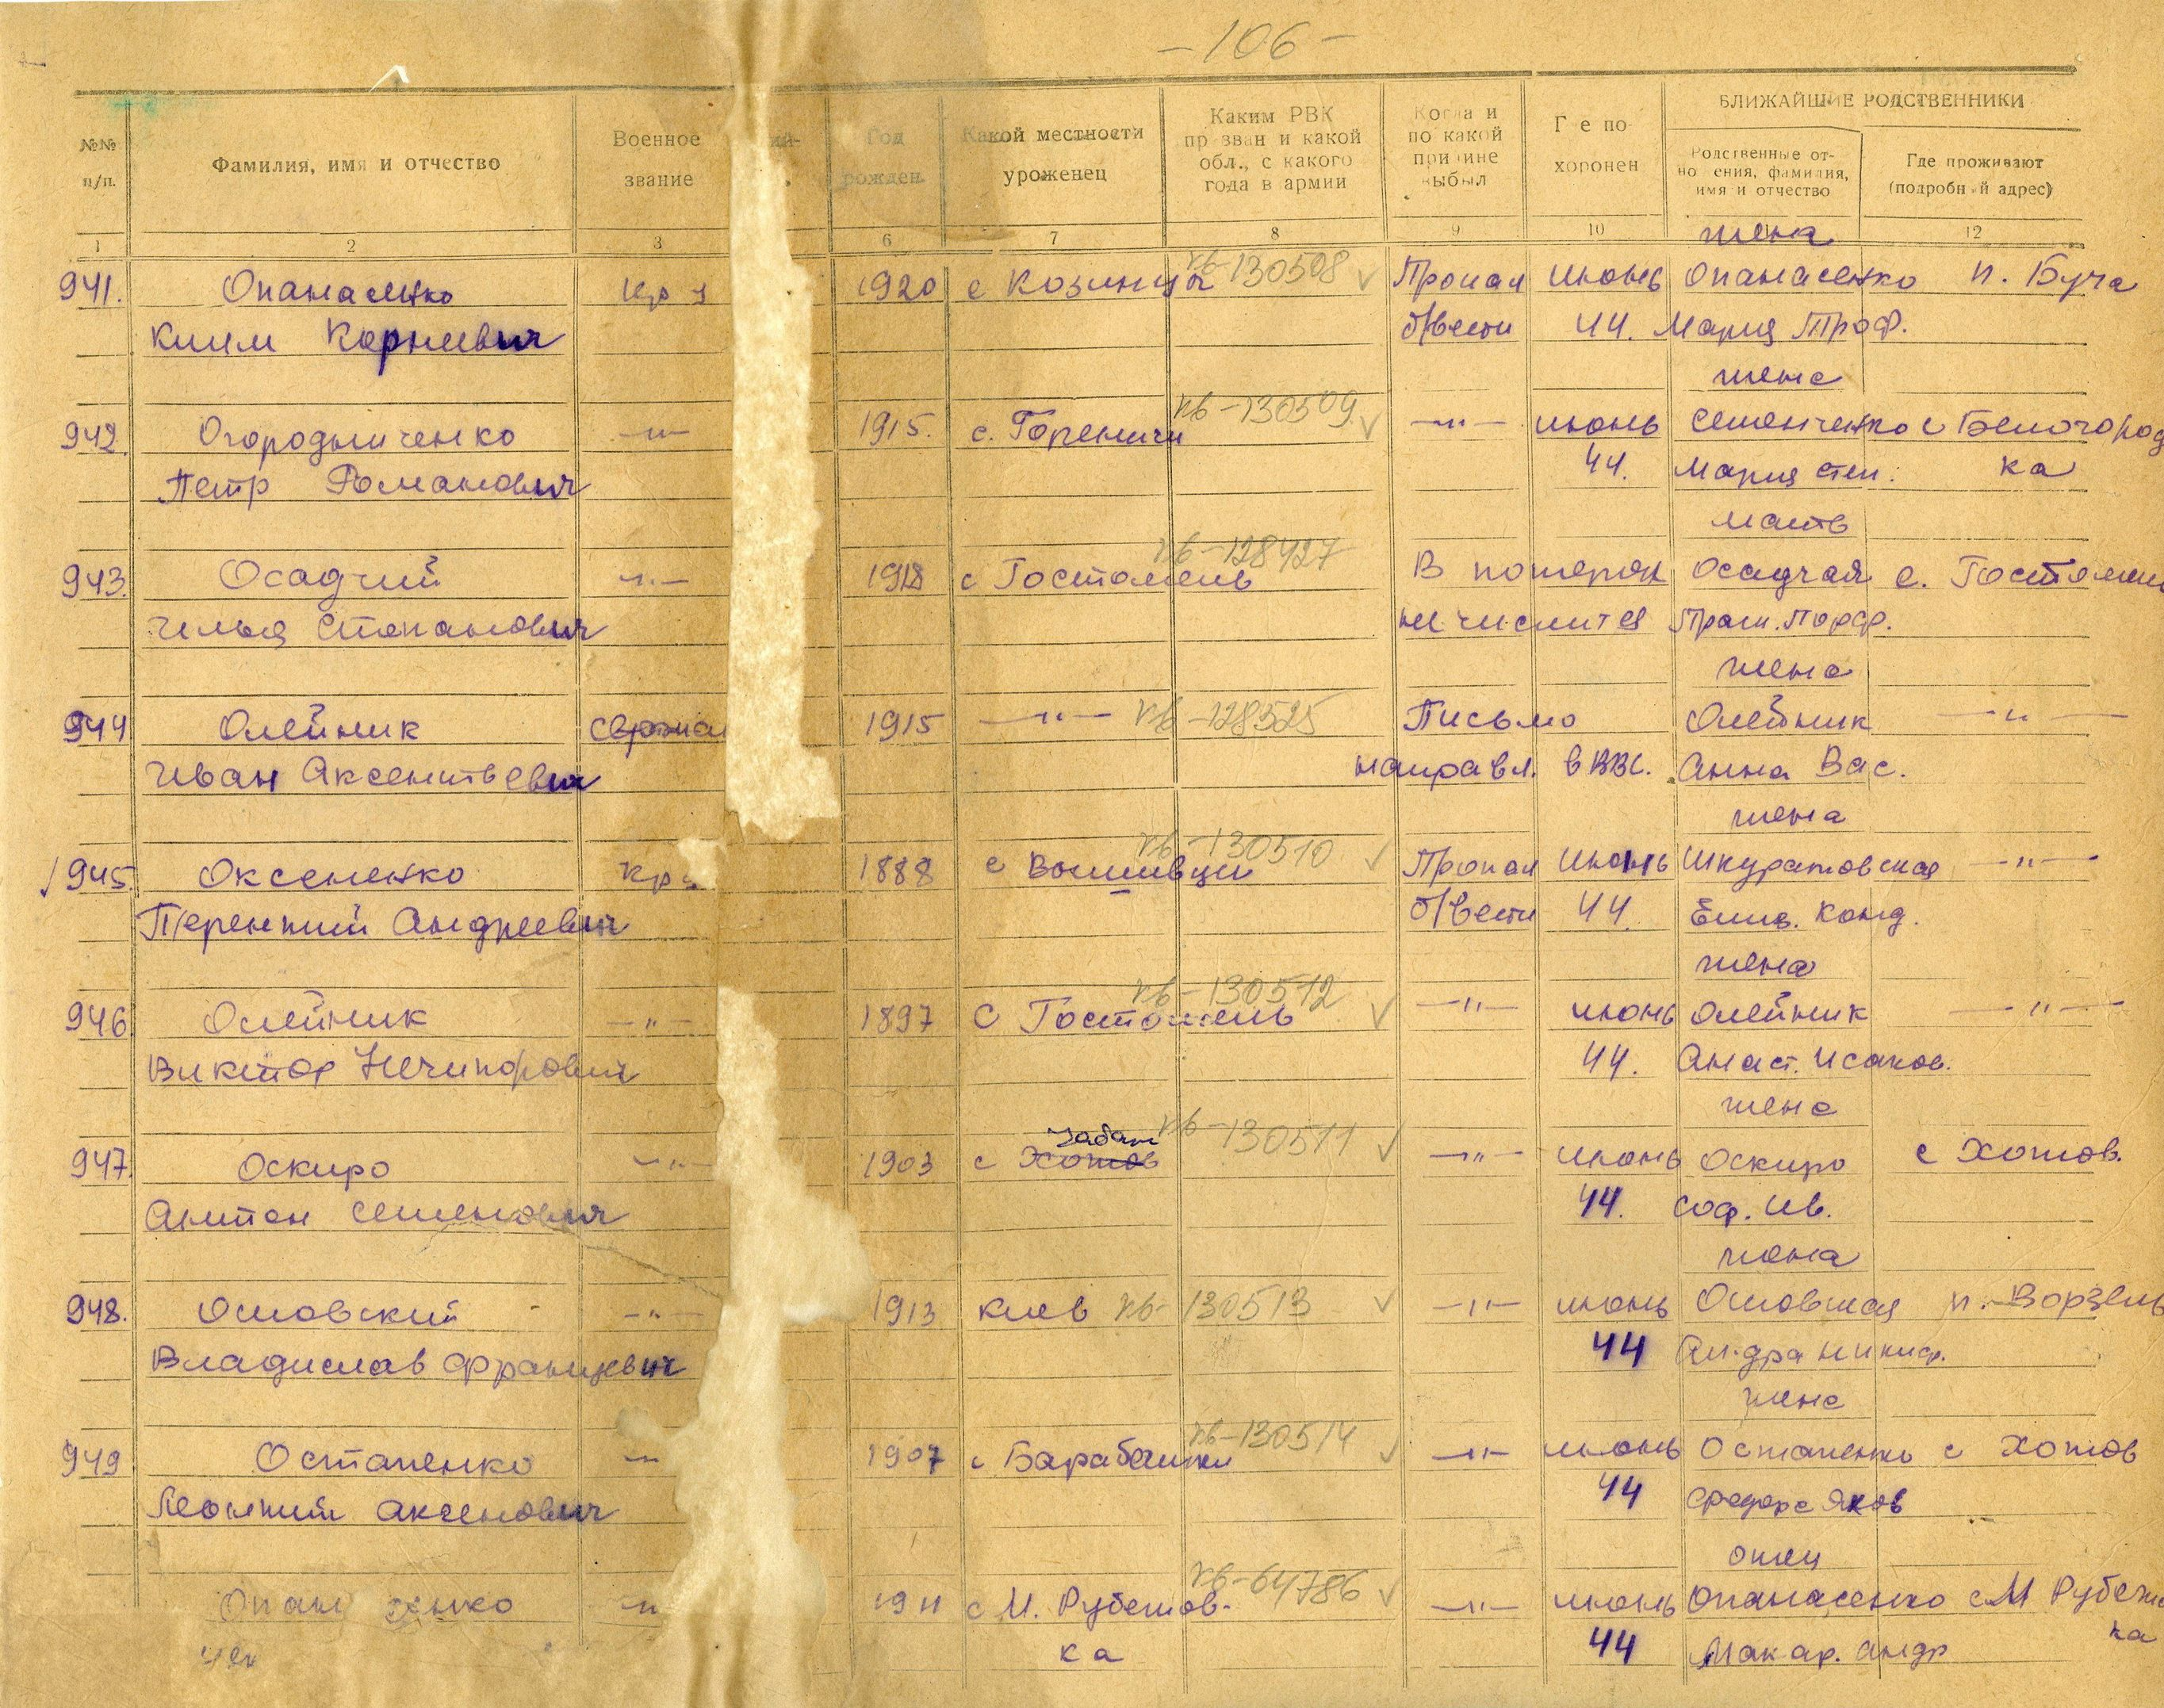 - 106 -
№№ п/п.
Фамилия, имя и отчество
Военное звание
Год рожден.
Какой местности уроженец
Каким РВК призван и какой обл., с какого года в армии
Когда и по какой причине выбыл
Где похоронен
БЛИЖАЙШИЕ РОДСТВЕННИКИ
Родственные отношения, фамилия, имя и отчество
Где проживают (подробный адрес)
1 2 3 6 7 8 9 10 12
жена
941. Опанасенко Кр 1920 с Козинцы кв-130508 Пропал июнь Опанасенко п. Буча
Клим Корнеевич б/вести 44. Мария Троф.
жена
942. Огородниченко —"— 1915. с. Гореничи кв-130509 —"— июнь Семенченко с Белогород
Петр Романович 44. Мария Степ. ка
мать
943. Осадчий —"— 1918 с Гостомель кв-128427 В потерях Осадчая с. Гостомель
Илья Степанович не числится Праск. Порф.
жена
944 Олейник Сержан 1915 —"— кв-128525 Письмо Олейник —"—
Иван Аксентьевич направл. в ВВС. Анна Вас.
жена
945 Оксененко Кр 1888 с кв-130510 Пропал июнь Шкуратовская —"—
Терентий Андреевич б/вести 44. Елиз. Конд.
жена
946 Олейник —"— 1897 с Гостомель кв-130512 —"— июнь Олейник —"—
Виктор Нечипорович 44. Анаст. Исаков.
жена
Чабаны
947. Оскиро —"— 1903 с Хотов кв-130511 —"— июнь Оскиро с Хотов.
Антон Семенович 44. Соф. Ив.
жена
948. Осовский —"— 1913 Киев кв-130513 —"— июнь Осовская п. Ворзель
Владислав Францевич 44 Никиф.
жена
949 Остапенко —"— 1907 с кв-130514 —"— июнь Остапенко с Хотов
Леонтий Аксенович 44 Федора Яков
отец
Опанасенко —"— 1911 с М. Рубежов- кв-64786 —"— июнь Опанасенко с М Рубежо
ка 44 Макар. Андр ка